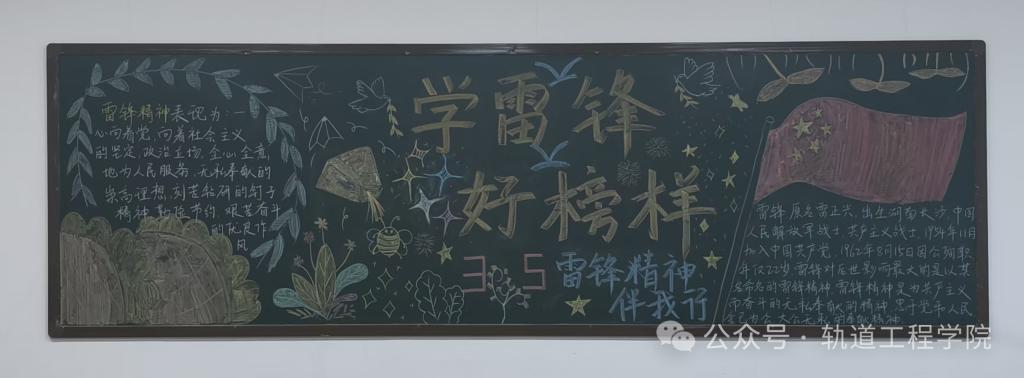 雷锋精神表现为：一
心向着党，向着社会主义
的坚定政治立场，全心全意
地为人民服务，无私奉献的
崇高理想，刻苦钻研的钉子
精神，勤俭节约，艰苦奋斗
的优良作
风
学雷锋
好榜样
3.5
雷锋精神
伴我行
雷锋，原名雷正兴，出生湖南长沙，中国
人民解放军战士，共产主义战士，1954年11月
加入中国共产党，1962年8月15日因公殉职
年仅22岁，雷锋对后世影响最大的是以其
名命名的雷锋精神，雷锋精神是为共产主义
而奋斗的无私奉献的精神，忠于党和人民
公众号·轨道工程学院